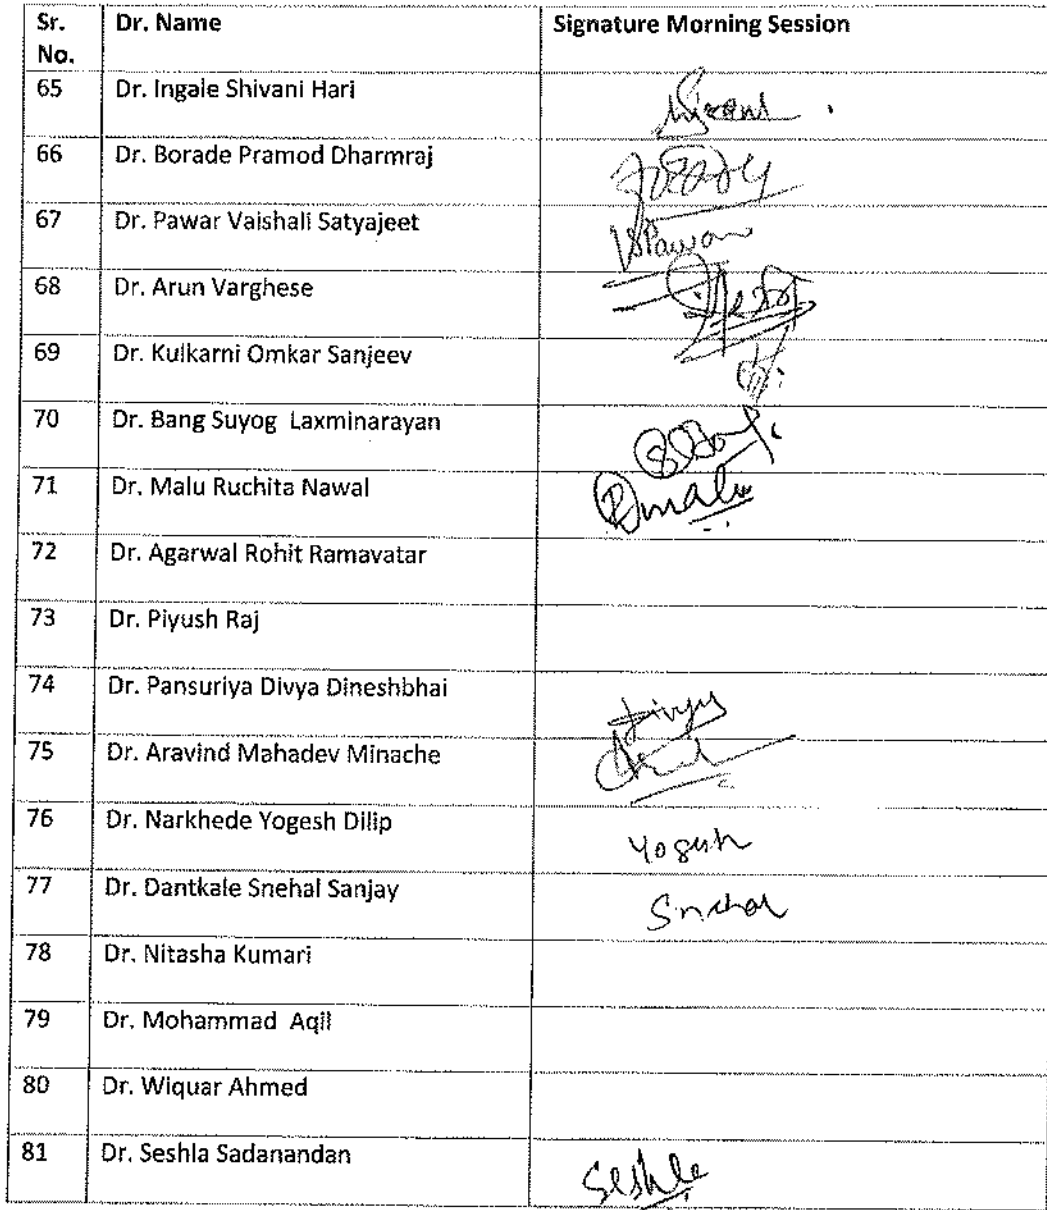 Sr. No. Dr. Name Signature Morning Session
65 Dr. Ingale Shivani Hari
66 Dr. Borade Pramod Dharmraj
67 Dr. Pawar Vaishali Satyajeet VSPawar
68 Dr. Arun Varghese
69 Dr. Kulkarni Omkar Sanjeev
70 Dr. Bang Suyog Laxminarayan
71 Dr. Malu Ruchita Nawal Rmalu
72 Dr. Agarwal Rohit Ramavatar
73 Dr. Piyush Raj
74 Dr. Pansuriya Divya Dineshbhai Divya
75 Dr. Aravind Mahadev Minache
76 Dr. Narkhede Yogesh Dilip Yogesh
77 Dr. Dantkale Snehal Sanjay Snehal
78 Dr. Nitasha Kumari
79 Dr. Mohammad Aqil
80 Dr. Wiquar Ahmed
81 Dr. Seshla Sadanandan Seshla